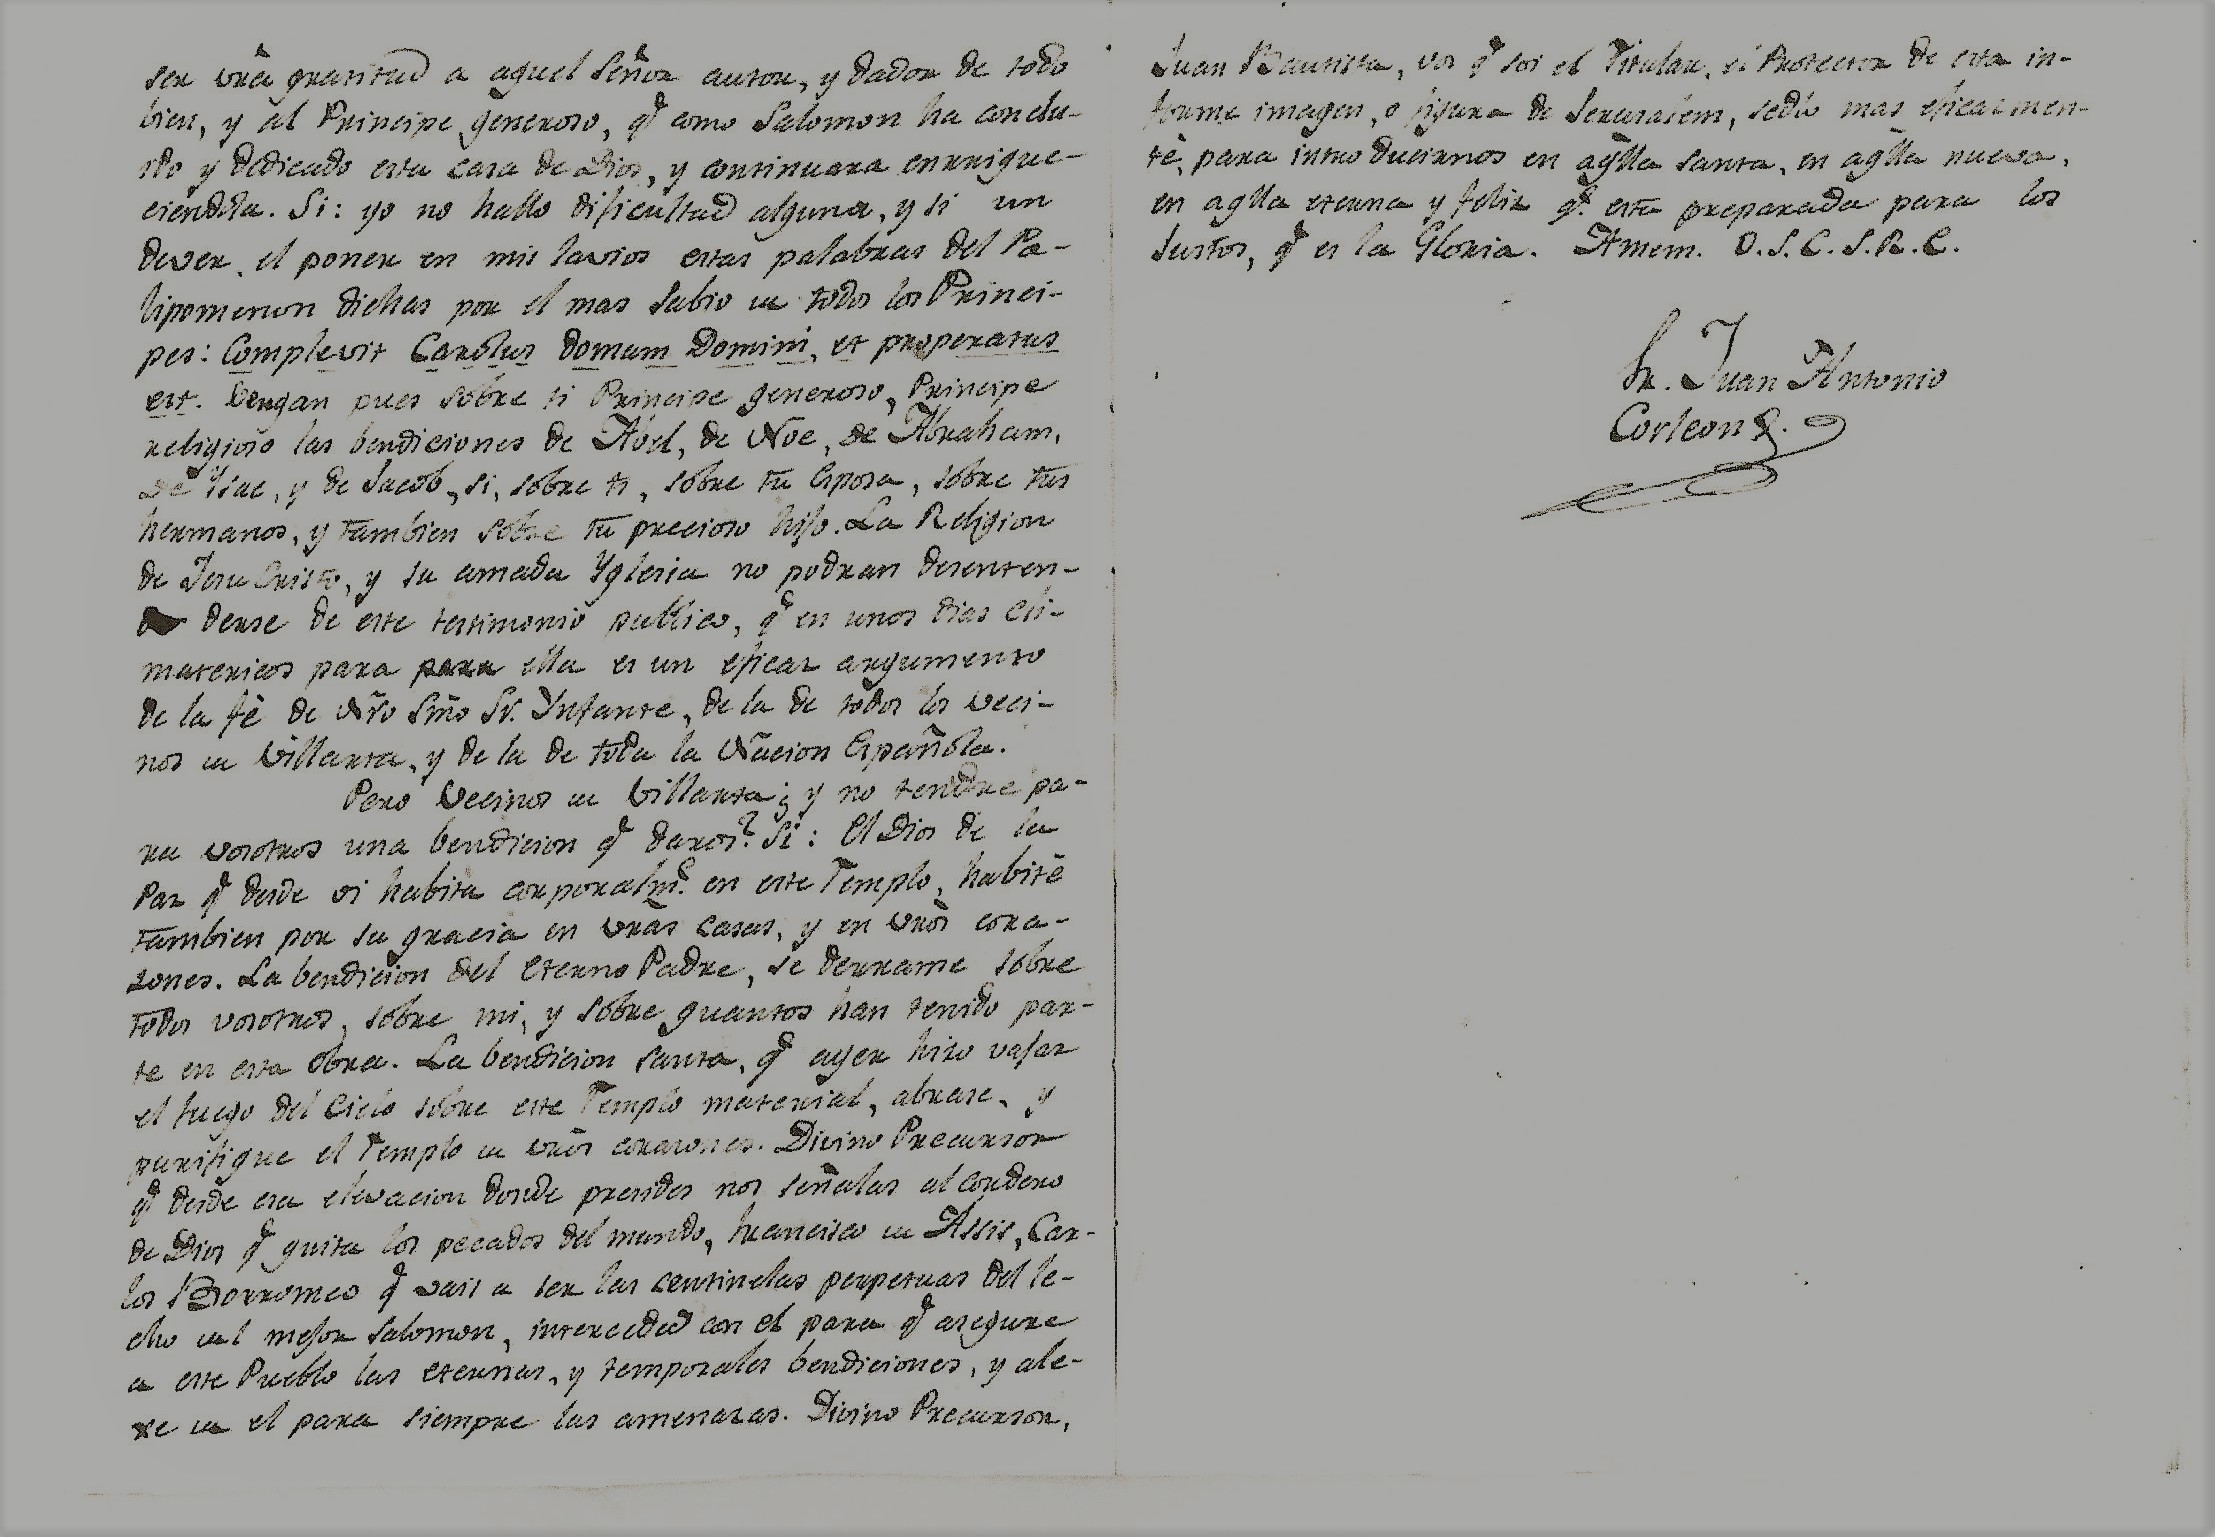 ser vrã gratitud a aquel Señor autor, y dador de todo
bien, y al Principe generoso, q̃ como Salomon ha conclu-
ido y dedicado esta casa de Dios, y continuara enrrique-
ciendola. Si: yo no hallo dificultad alguna, y si un
dever, el poner en mis lavios estas palabras del Pa-
lipomenon dichas por el mas Sabio de todos los Princi-
pes: Complevit Carolus domum Domini, et properatus
est. Vengan pues sobre ti Principe generoso, Principe
religioso las bendiciones de Abel, de Noe, de Abraham,
de Ysac, y de Jacob, si, sobre ti, sobre tu Esposa, sobre tus
hermanos, y tambien sobre tu precioso hijo. La Religion
de Jesu Cristo, y su amada Yglesia no podran desenten-
derse de este testimonio publico, q̃ en unos dias cli-
matericos para para ella es un eficaz argumento
de la fè de Nr̃o Smo Sr. Ynfante, de la de todos los veci-
nos de Villarta, y de la de toda la Nacion Española.
Pero Vecinos de Villarta ¿ y no tendre pa-
ra vosotros una bendicion q̃ daros? Si: El Dios de la
Paz q̃ desde oi habita corporalmẽ. en este Templo, habitè
tambien por su gracia en vrãs casas, y en vrõs cora-
zones. La bendicion del eterno Padre, se derrame sobre
todos vosotros, sobre mi, y sobre quantos han tenido par-
te en esta obra. La bendicion santa, q̃ ayer hizo vajar
el fuego del Cielo sobre este Templo material, abrase, y
purifique el Templo de vrõs corazones. Divino Precursor
q̃ desde esa elevacion donde presides nos señalas al Cordero
de Dios q̃ quita los pecados del mundo, Francisco de Assis, Car-
los Borromeo q̃ vais a ser las centinelas perpetuas del le-
cho del mejor Salomon, interceded con el para q̃ asegure
a este Pueblo las eternas, y temporales bendiciones, y ale-
xe de el para siempre las amenazas. Divino Precursor,
Juan Bautista, vos q̃ soi el Titular, ei Protector de esta in-
forme imagen, o figura de Jerusalem, sedlo mas eficazmen-
tè, para introducirnos en aq̃lla santa, en aq̃lla nueva,
en aqlla eterna y feliz q̃. esta preparada para los
Justos, q̃ es la Gloria. Amem. O. S. C. S. R. C.
Fr. Juan Antonio
Corleon